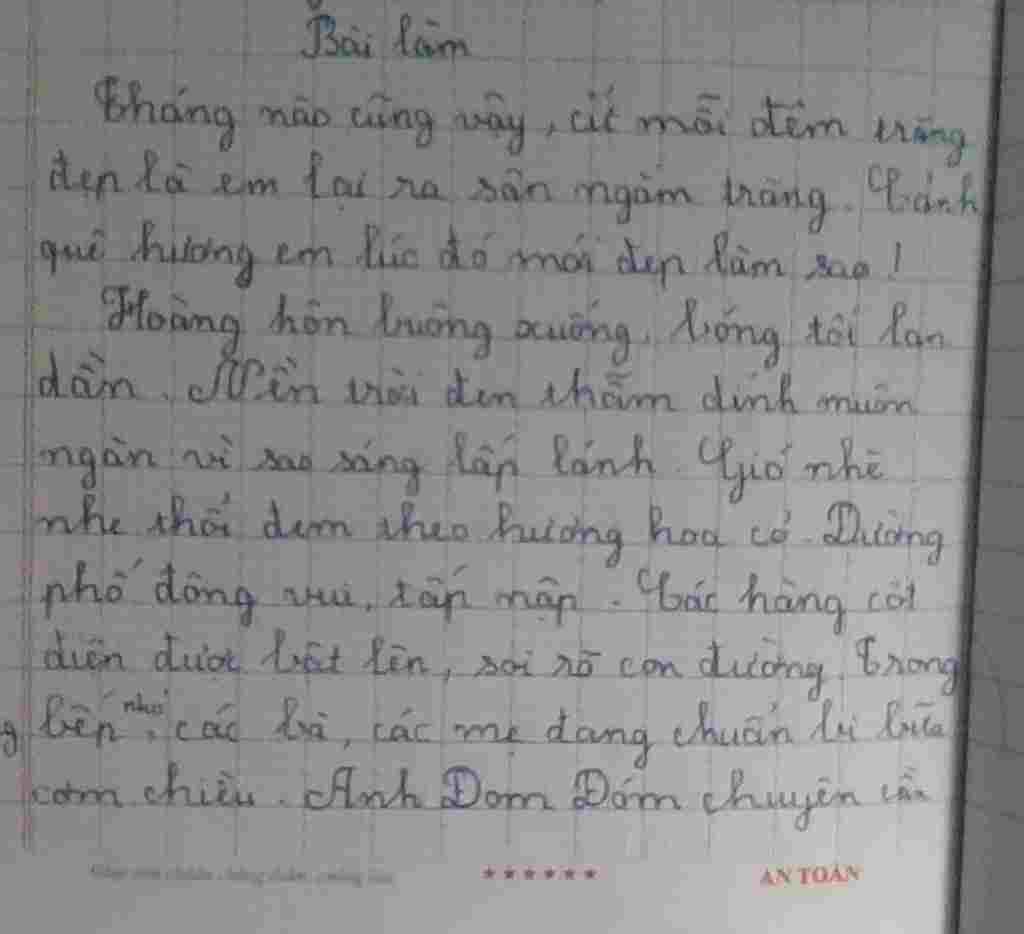 Bài làm
Tháng nào cũng vậy, cứ mỗi đêm trăng
đẹp là em lại ra sân ngắm trăng. Cảnh
quê hương em lúc đó mới đẹp làm sao!
Hoàng hôn buông xuống, bóng tối lan
dần. Nền trời đen thẫm đính muôn
ngàn vì sao sáng lấp lánh. Gió nhè
nhẹ thổi đem theo hương hoa cỏ. Đường
phố đông vui, tấp nập. Các hàng cột
điện được bật lên, soi rõ con đường. Trong
bếp nhỏ, các bà, các mẹ đang chuẩn bị bữa
cơm chiều. Anh Đom Đóm chuyên cần
★★★★★★ AN TOÀN